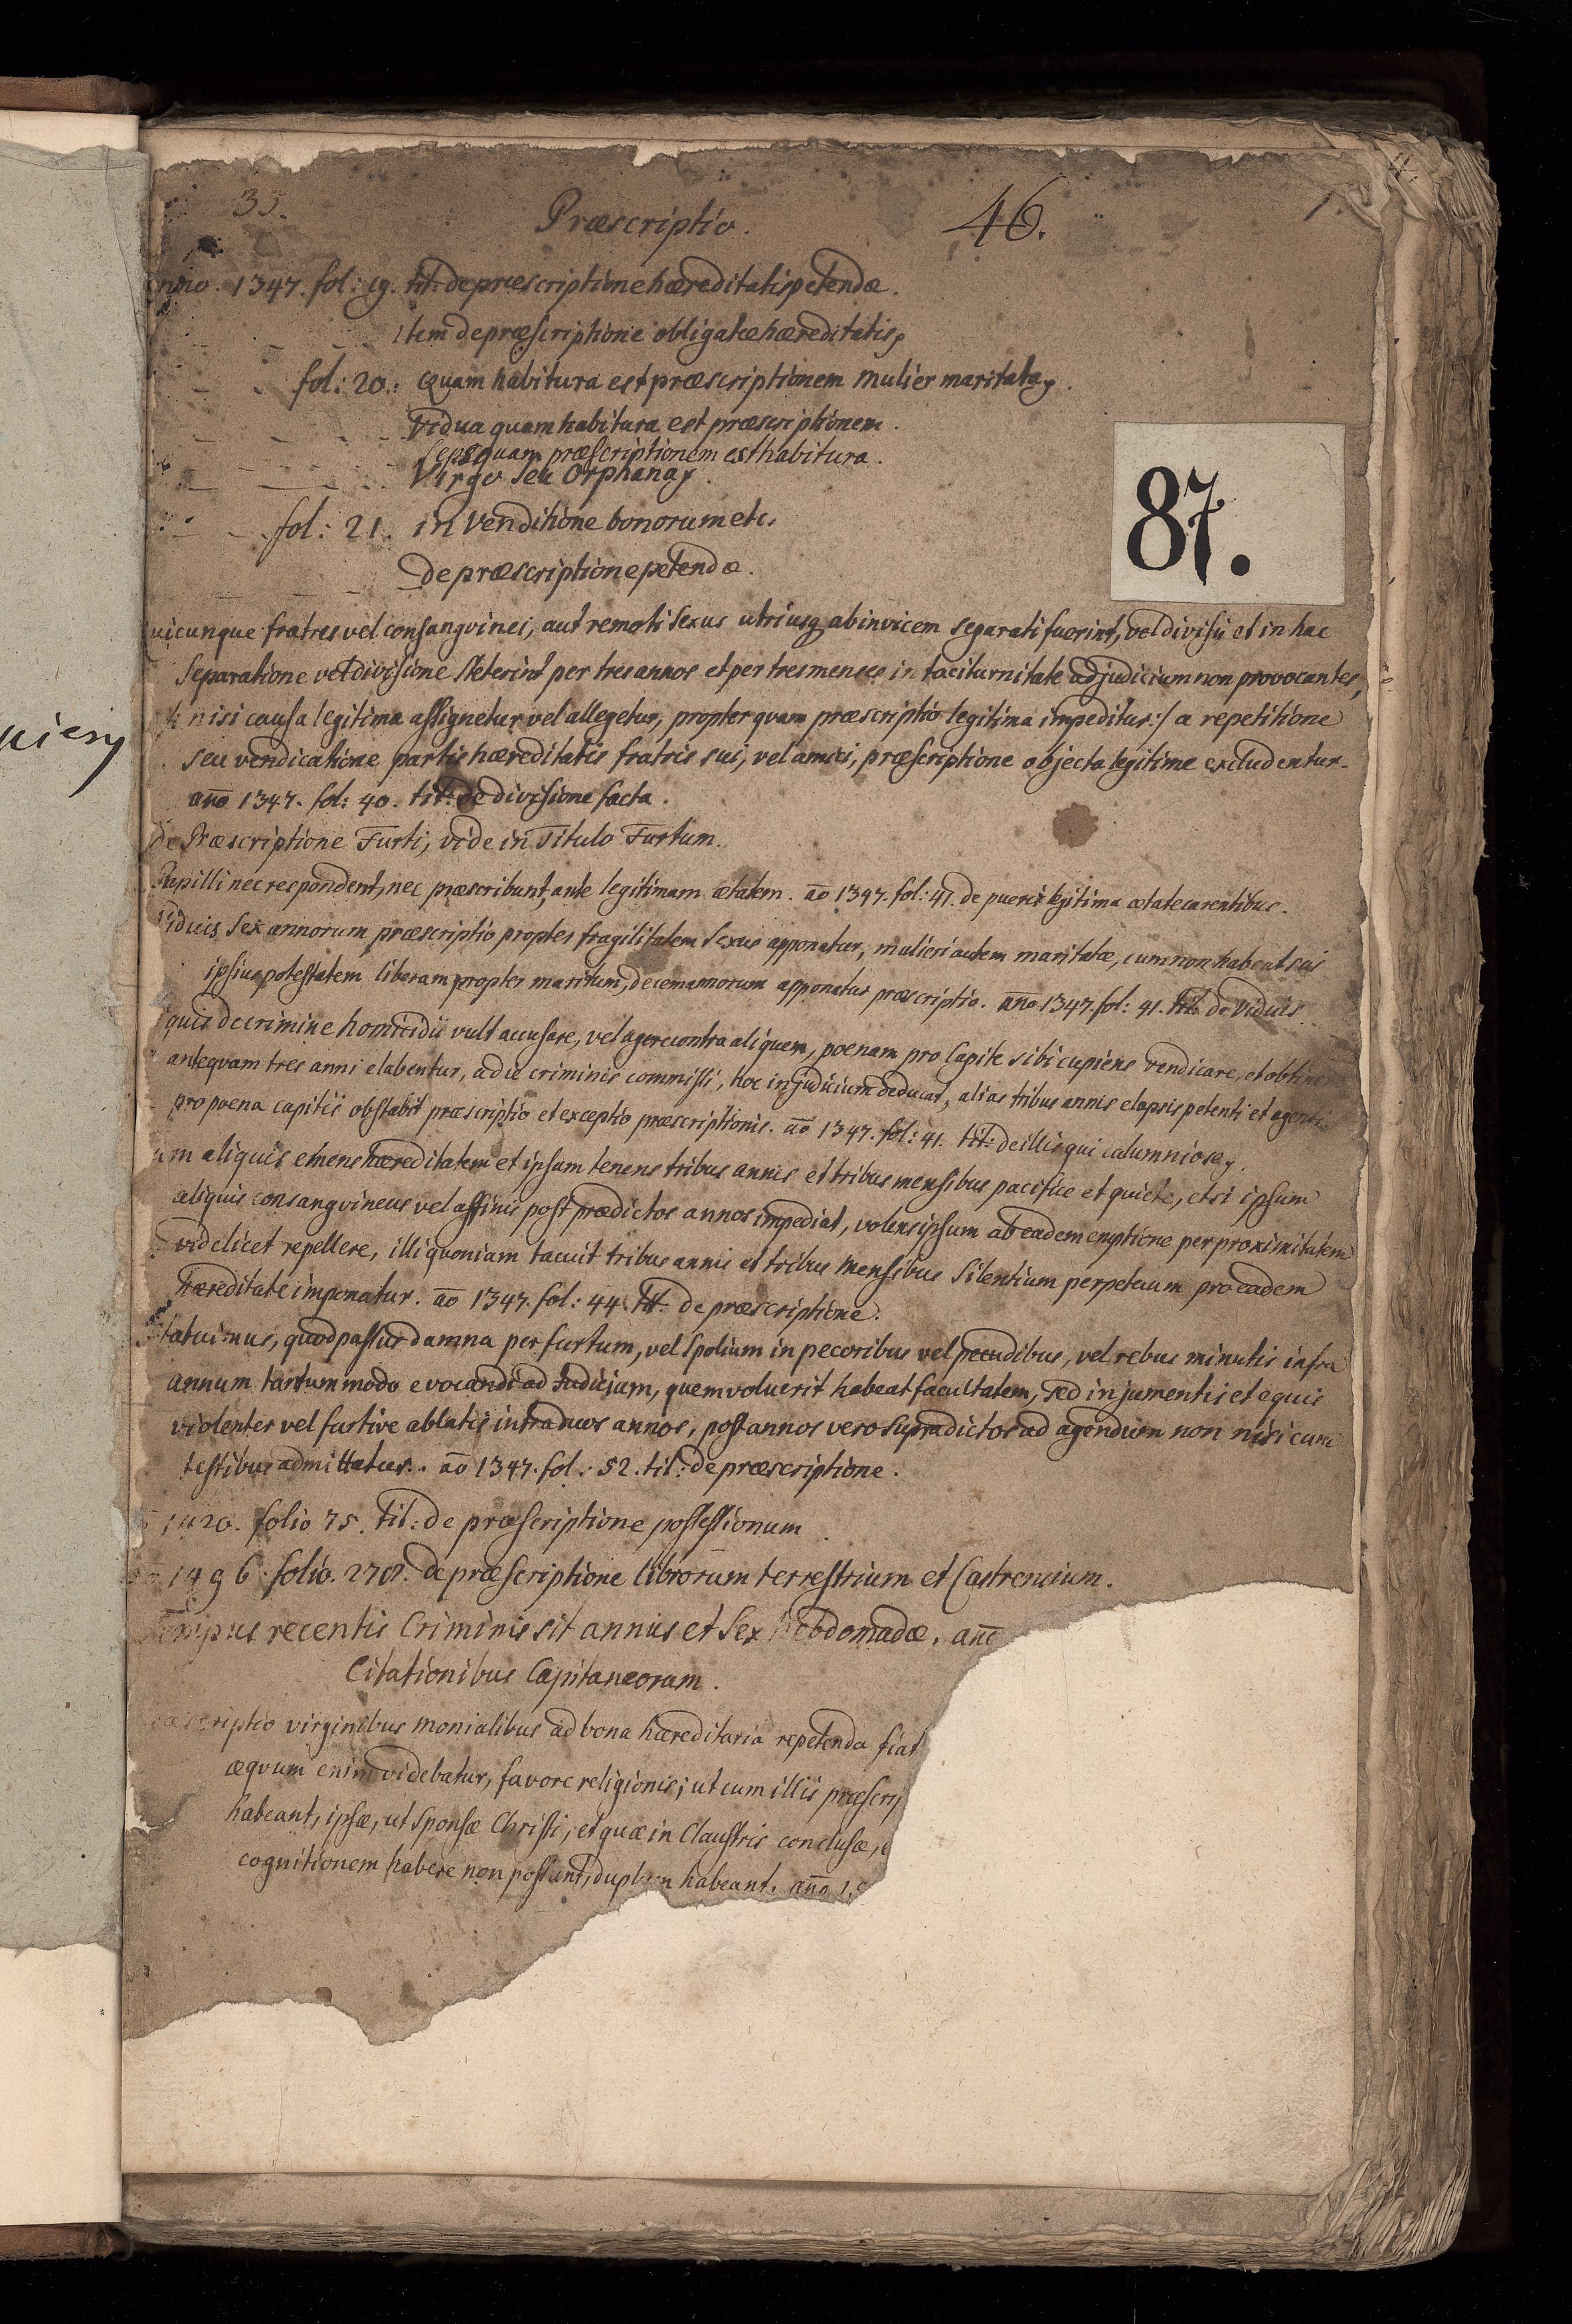 35.
Præscriptio.
46.
1.
Anno. 1347. fol: 19. tit: de præscriptione hæreditatis petendæ.
Item de præscriptione obligatæ hæreditatis,
fol: 20. Quam habitura est præscriptionem mulier maritata,
Vidua quam habitura est præscriptionem.
quam præscriptionem est habitura.
Virgo seu Orphana,
fol: 21. in venditione bonorum etc.
De præscriptione petenda.
87.
uicunque fratres vel consangvinei, aut remoti sexus utriusq ab invicem separati fuerint, vel divisi et in hac
separatione vel divisione steterint per tres annos et per tres menses in taciturnitate ad judicium non provocantes,
nisi causa legitima assignetur vel allegetur, propter qvam præscriptio legitima impeditur:/ a repetitione
seu vendicatione partis hæreditatis fratris sui, vel amici, præscriptione objecta legitime excludentur.
año 1347. fol: 40. tit: de divisione facta.
de Præscriptione Furti, vide in Titulo Furtum.
Pupilli nec respondent, nec præscribunt, ante legitimam ætatem. aõ 1347. fol: 41. de pueris legitima ætate carentibus.
iduis sex annorum præscriptio propter fragilitatem sexus apponatur, mulieri autem maritatæ, cum non habeat sui
ipsius potestatem liberam propter maritum, decem annorum apponatur præscriptio. año 1347. fol: 41. tit: de Viduis
quis de crimine homicidii vult accusare, vel agere contra aliquem, poenam pro Capite sibi cupiens vendicare, et obtinere
anteqvam tres anni elabentur, a die criminis commissi, hoc in judicium deducat, alias tribus annis elapsis petenti et agenti
pro poena capitis obstabit præscriptio et exceptio præscriptionis. aõ 1347. fol: 41. tit: de illis qui calumniose,
um aliquis emens hæreditatem et ipsam tenens tribus annis et tribus mensibus pacifice et quiete, etsi ipsum
aliquis consangvineus vel affinis post prædictos annos impediat, volens ipsum ab eadem emptione per proximitatem
videlicet repellere, illi quoniam tacuit tribus annis et tribus mensibus silentium perpetuum pro eadem
hæreditate imponatur. aõ 1347. fol: 44. tit: de præscriptione.
Statuimus, quod passus damna per furtum, vel spolium in pecoribus vel pecudibus, vel rebus minutis infra
annum tantummodo evocandi ad Judicium, quem voluerit habeat facultatem, sed in jumentis et equis
violenter vel furtive ablatis intra duos annos, post annos vero supradictos ad agendum non nisi cum
testibus admittatur. aõ 1347. fol: 52. tit: de præscriptione.
1420. folio 75. tit: de præscriptione possessionum
1496. folio. de præscriptione librorum terrestrium et Castrensium.
Tempus recentis Criminis sit annus et sex hebdomadæ. año
Citationibus Capitaneorum.
æscriptio virginibus monialibus ad bona hæreditaria repetenda fiat
æqvum enim videbatur, favore religionis; ut cum illis præscrip
habeant, ipsæ, ut Sponsæ Christi, et quæ in Claustris conclusæ,
cognitionem habere non possunt, duplum habeant. año 15